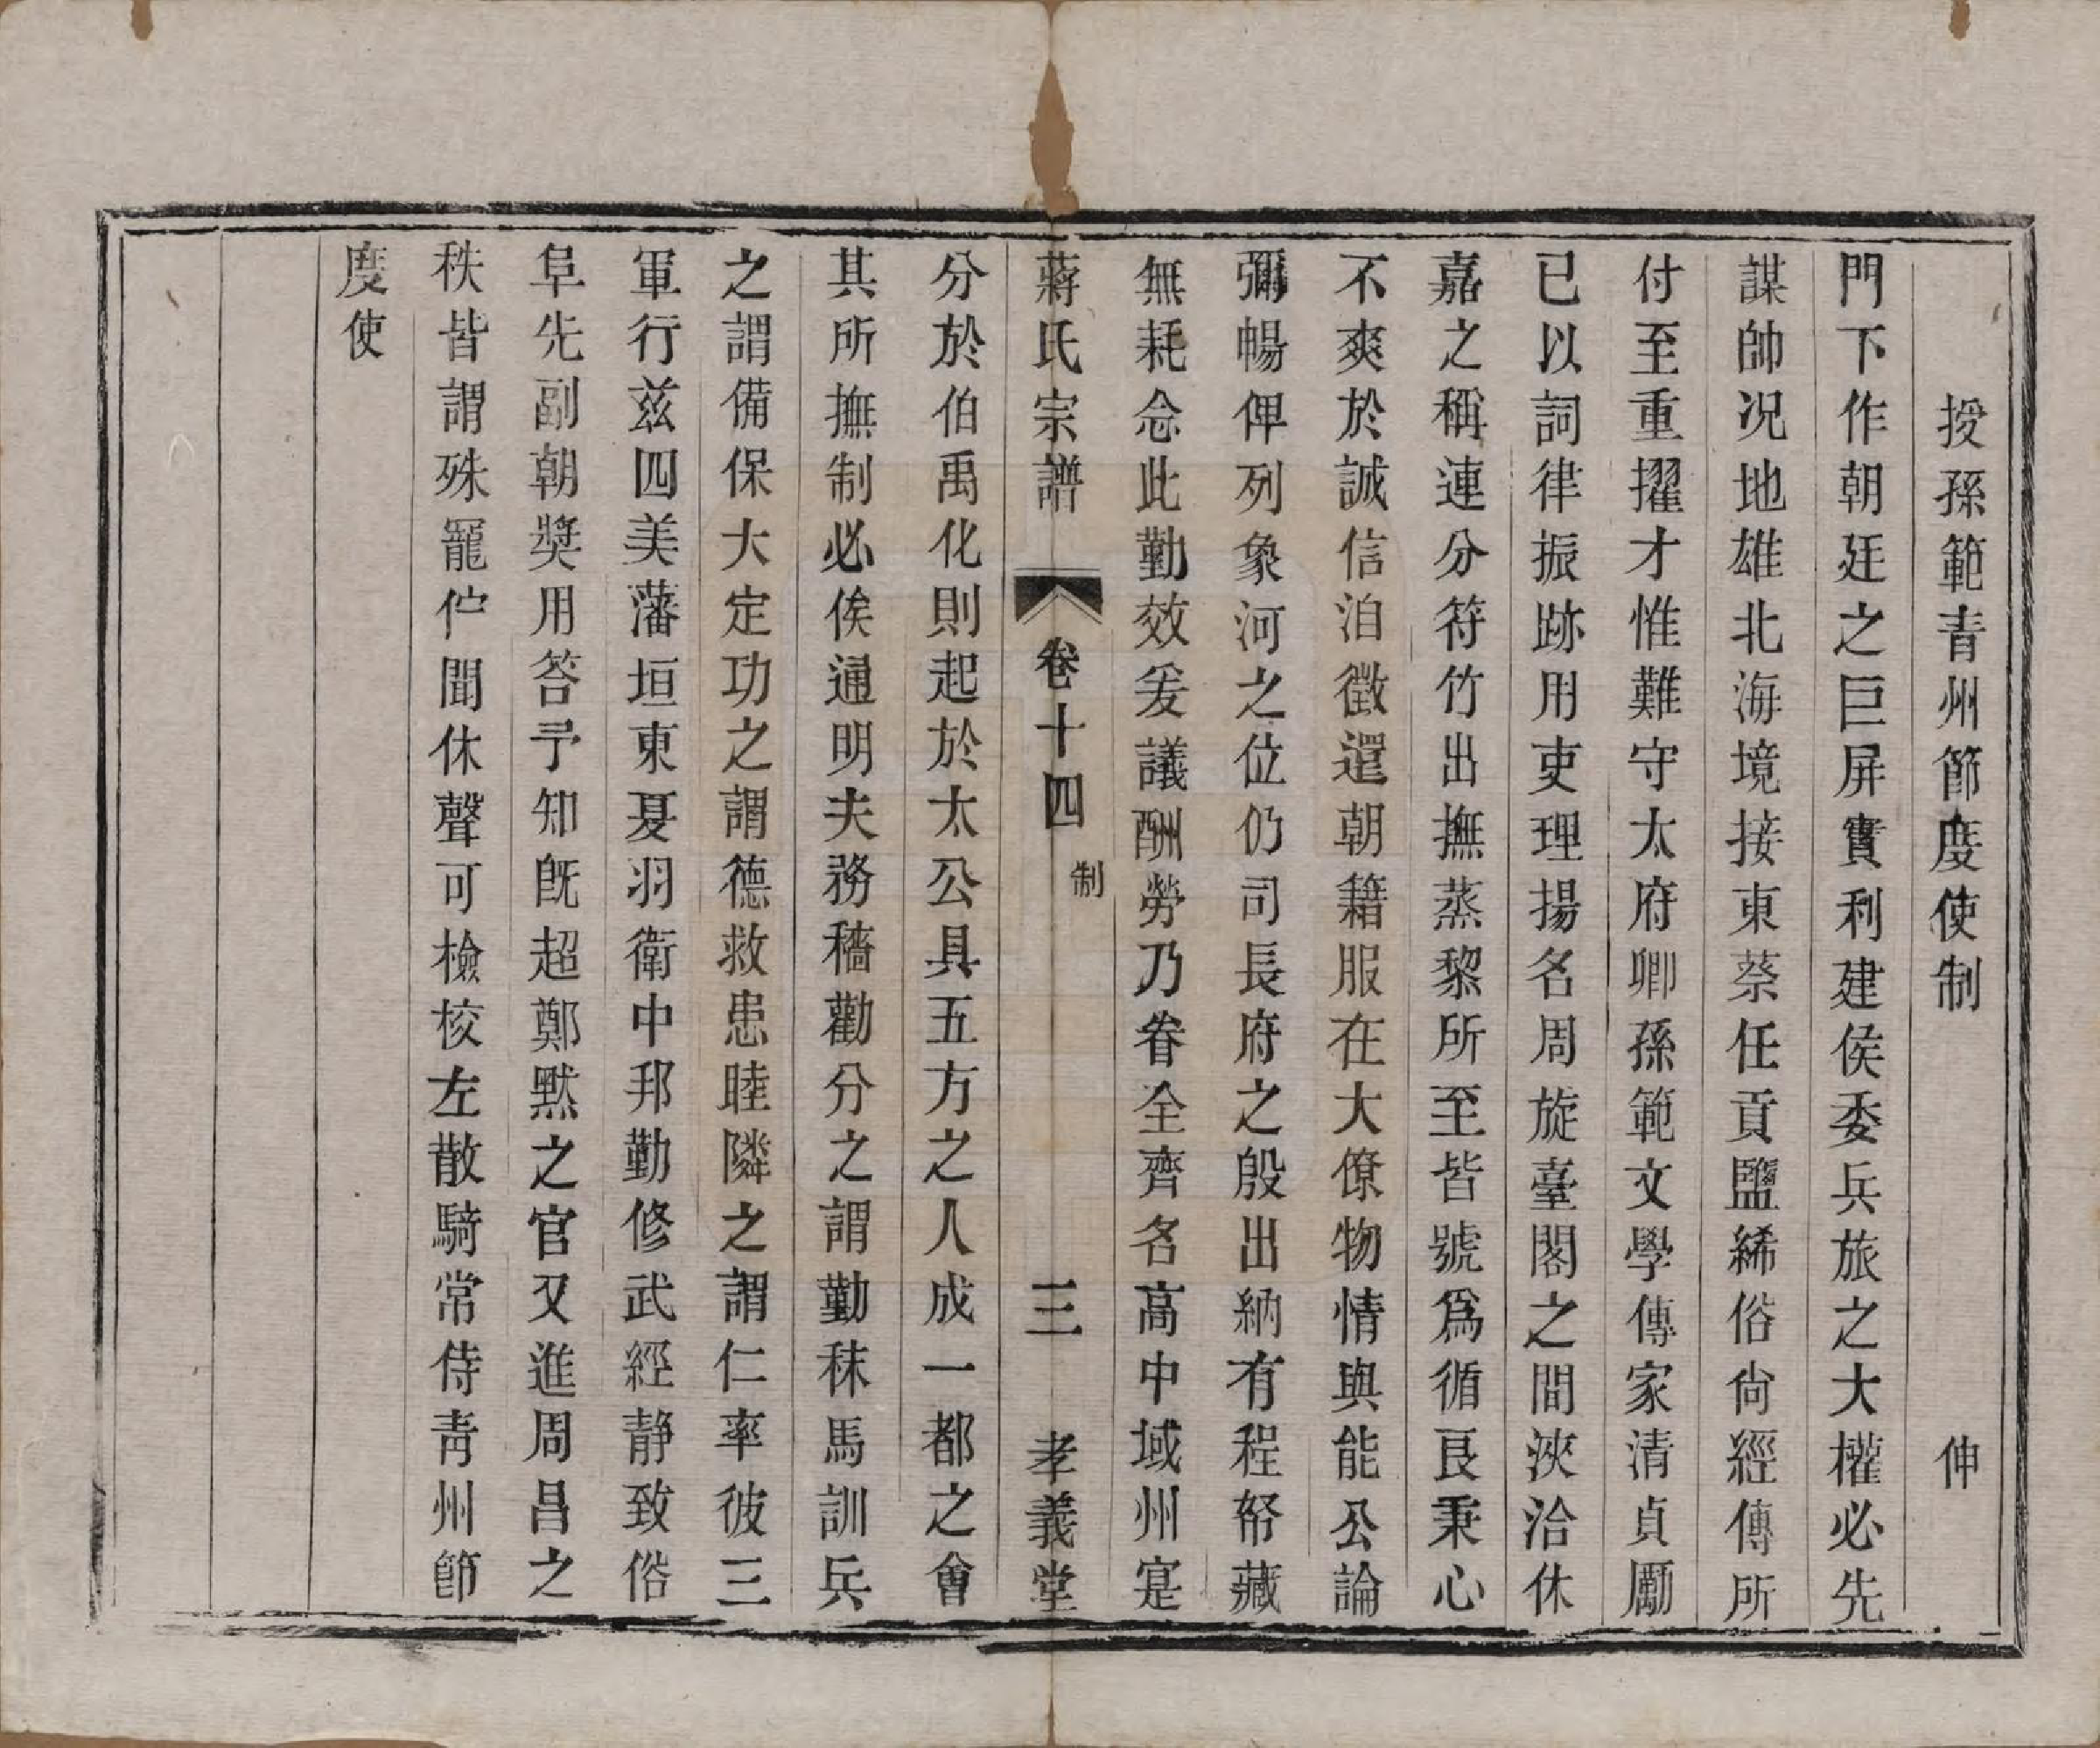 授孫範青州節度使制　伸
門下作朝廷之巨屏實利建侯委兵旅之大權必先
謀帥况地雄北海境接東蔡任貢鹽絺俗尙經傳所
付至重擢才惟難守太府卿孫範文學傳家清貞勵
已以詞律振跡用吏理揚名周旋臺閣之間浹洽休
嘉之稱連分符竹出撫蒸黎所至皆號爲循良秉心
不爽於誠信洎徵還朝籍服在大僚物情與能公論
彌暢俾列象河之位仍司長府之殷出納有程帑藏
無耗念此勤效爰議酬勞乃眷全齊名高中域州寔
蔣氏宗譜　卷十四　制　三　孝義堂
分於伯禹化則起於太公具五方之人成一都之會
其所撫制必俟通明夫務穡勸分之謂勤秣馬訓兵
之謂備保大定功之謂德救患睦隣之謂仁率彼三
軍行兹四美藩垣東夏羽衛中邦勤修武經靜致俗
阜先副朝獎用答予知旣超鄭默之官又進周昌之
秩皆謂殊寵伫聞休聲可檢校左散騎常侍靑州節
度使